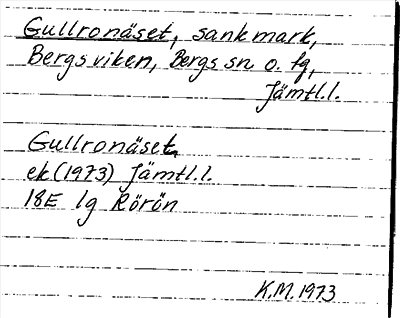 Gullronäset, sankmark,
Bergsviken, Bergs sn o. tg,
Jämtl.l.
Gullronäset
ek (1973) Jämtl.l.
18E 1g Rörön
K.M. 1973